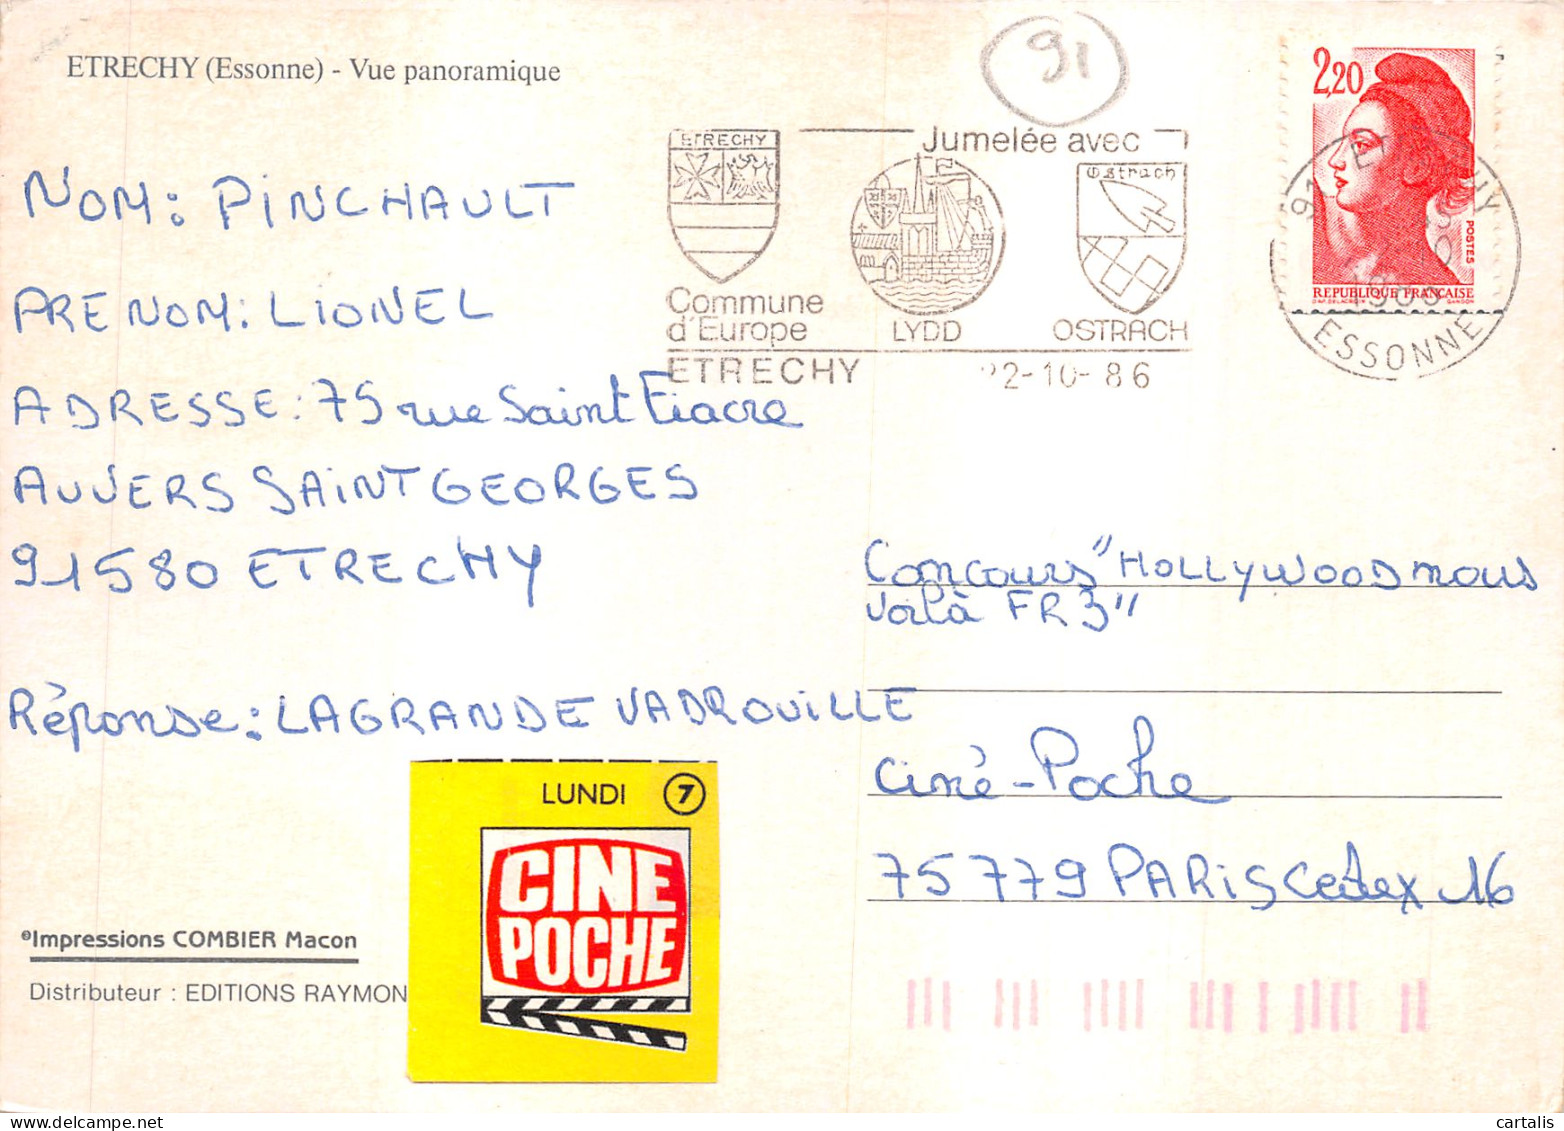 ETRECHY (Essonne) - Vue panoramique
91
2,20
POSTES
REPUBLIQUE FRANÇAISE
D'AP. DELACROIX GANDON
ESSONNE
ETRECHY
Jumelée avec
Ostrach
Commune
d'Europe
LYDD
OSTRACH
ETRECHY
2-10-86
NOM: PINCHAULT
PRENOM: LIONEL
ADRESSE: 75 rue Saint Fiacre
AUVERS SAINT GEORGES
91580 ETRECHY
Réponse: LA GRANDE VADROUILLE
Concours "HOLLYWOOD nous
voilà FR3"
Ciné-Poche
75779 PARIS Cedex 16
LUNDI 7
CINE
POCHE
Impressions COMBIER Macon
Distributeur : EDITIONS RAYMON
cartalis